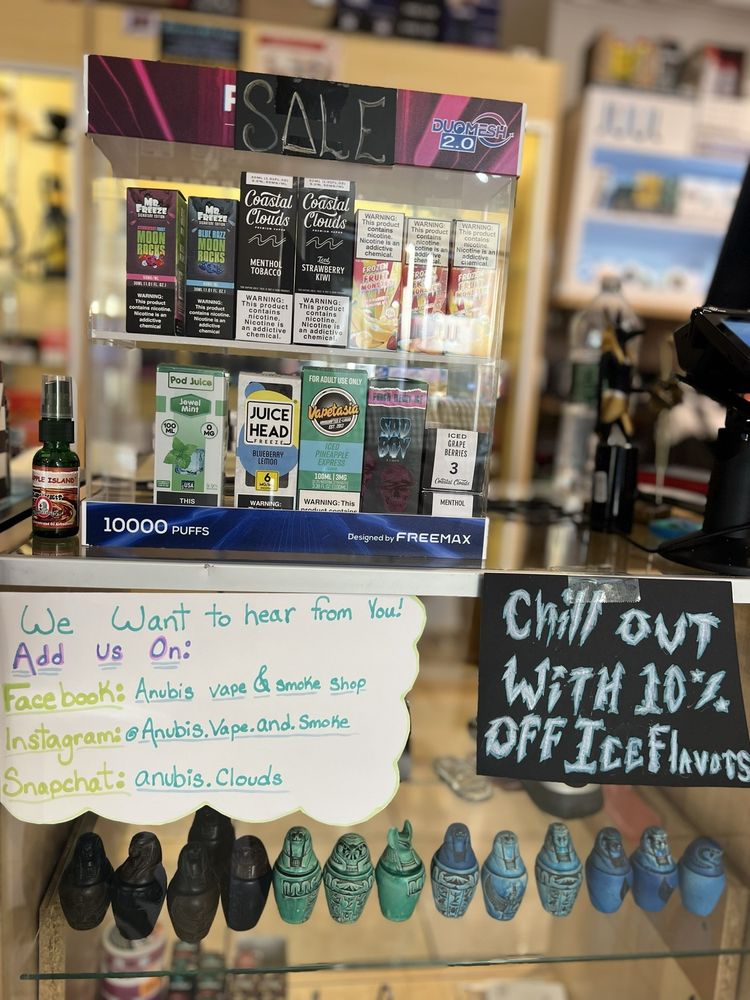 SALE
DUOMESH
2.0
MR FREEZE
SIGNATURE EDITION
MOON
ROCKS
WARNING:
This product
contains nicotine.
Nicotine is an
addictive
chemical.
MR FREEZE
SIGNATURE EDITION
BLUE RAZZ
MOON
ROCKS
WARNING:
This product
contains nicotine.
Nicotine is an
addictive
chemical.
Coastal
Clouds
MENTHOL
TOBACCO
WARNING:
This product
contains
nicotine.
Nicotine is
an addictive
chemical.
Coastal
Clouds
Iced
STRAWBERRY
KIWI
WARNING:
This product
contains
nicotine.
Nicotine is
an addictive
chemical.
WARNING:
This product
contains
nicotine.
Nicotine is an
addictive
chemical.
FROZEN
FRUIT
MONSTER
WARNING:
This product
contains
nicotine.
Nicotine is an
addictive
chemical.
WARNING:
This product
contains
nicotine.
Nicotine is an
addictive
chemical.
Pod Juice
Jewel
Mint
100
ML
0
MG
USA
THIS
JUICE
HEAD
FREEZE
BLUEBERRY
LEMON
6
WARNING:
FOR ADULT USE ONLY
Vapetasia
ICED
PINEAPPLE
EXPRESS
100ML | 3MG
WARNING: This
product contains
ICED
GRAPE
BERRIES
3
Coastal Clouds
MENTHOL
APPLE ISLAND
10000 PUFFS
Designed by FREEMAX
We Want to hear from You!
Add us On:
Facebook: Anubis vape & smoke shop
Instagram: @Anubis.Vape.and.Smoke
Snapchat: anubis.Clouds
Chill OUT
WITH 10%
OFF Ice Flavors